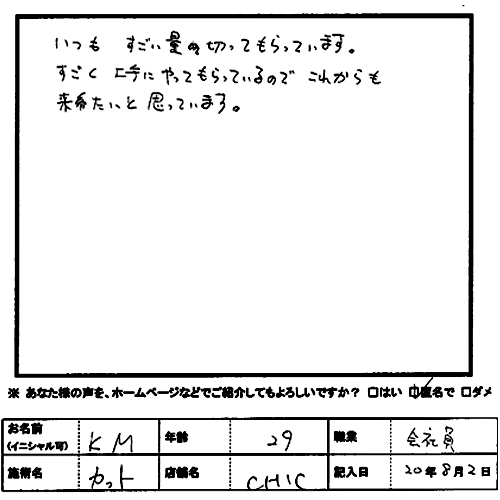 いつも すごい量を切ってもらっています。
すごく 上手にやってもらっているので これからも
来たいと 思っています。
※ あなた様の声を、ホームページなどでご紹介してもよろしいですか？ □はい ☑匿名で □ダメ
お名前 (イニシャル可) K M 年齢 29 職業 会社員
施術名 カット 店舗名 CHIC 記入日 20年8月2日